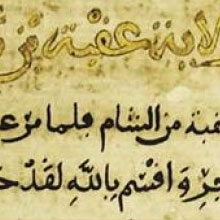 لاية عقبة بن
قبة من الشام فلما مر
وافسم بالله لقد